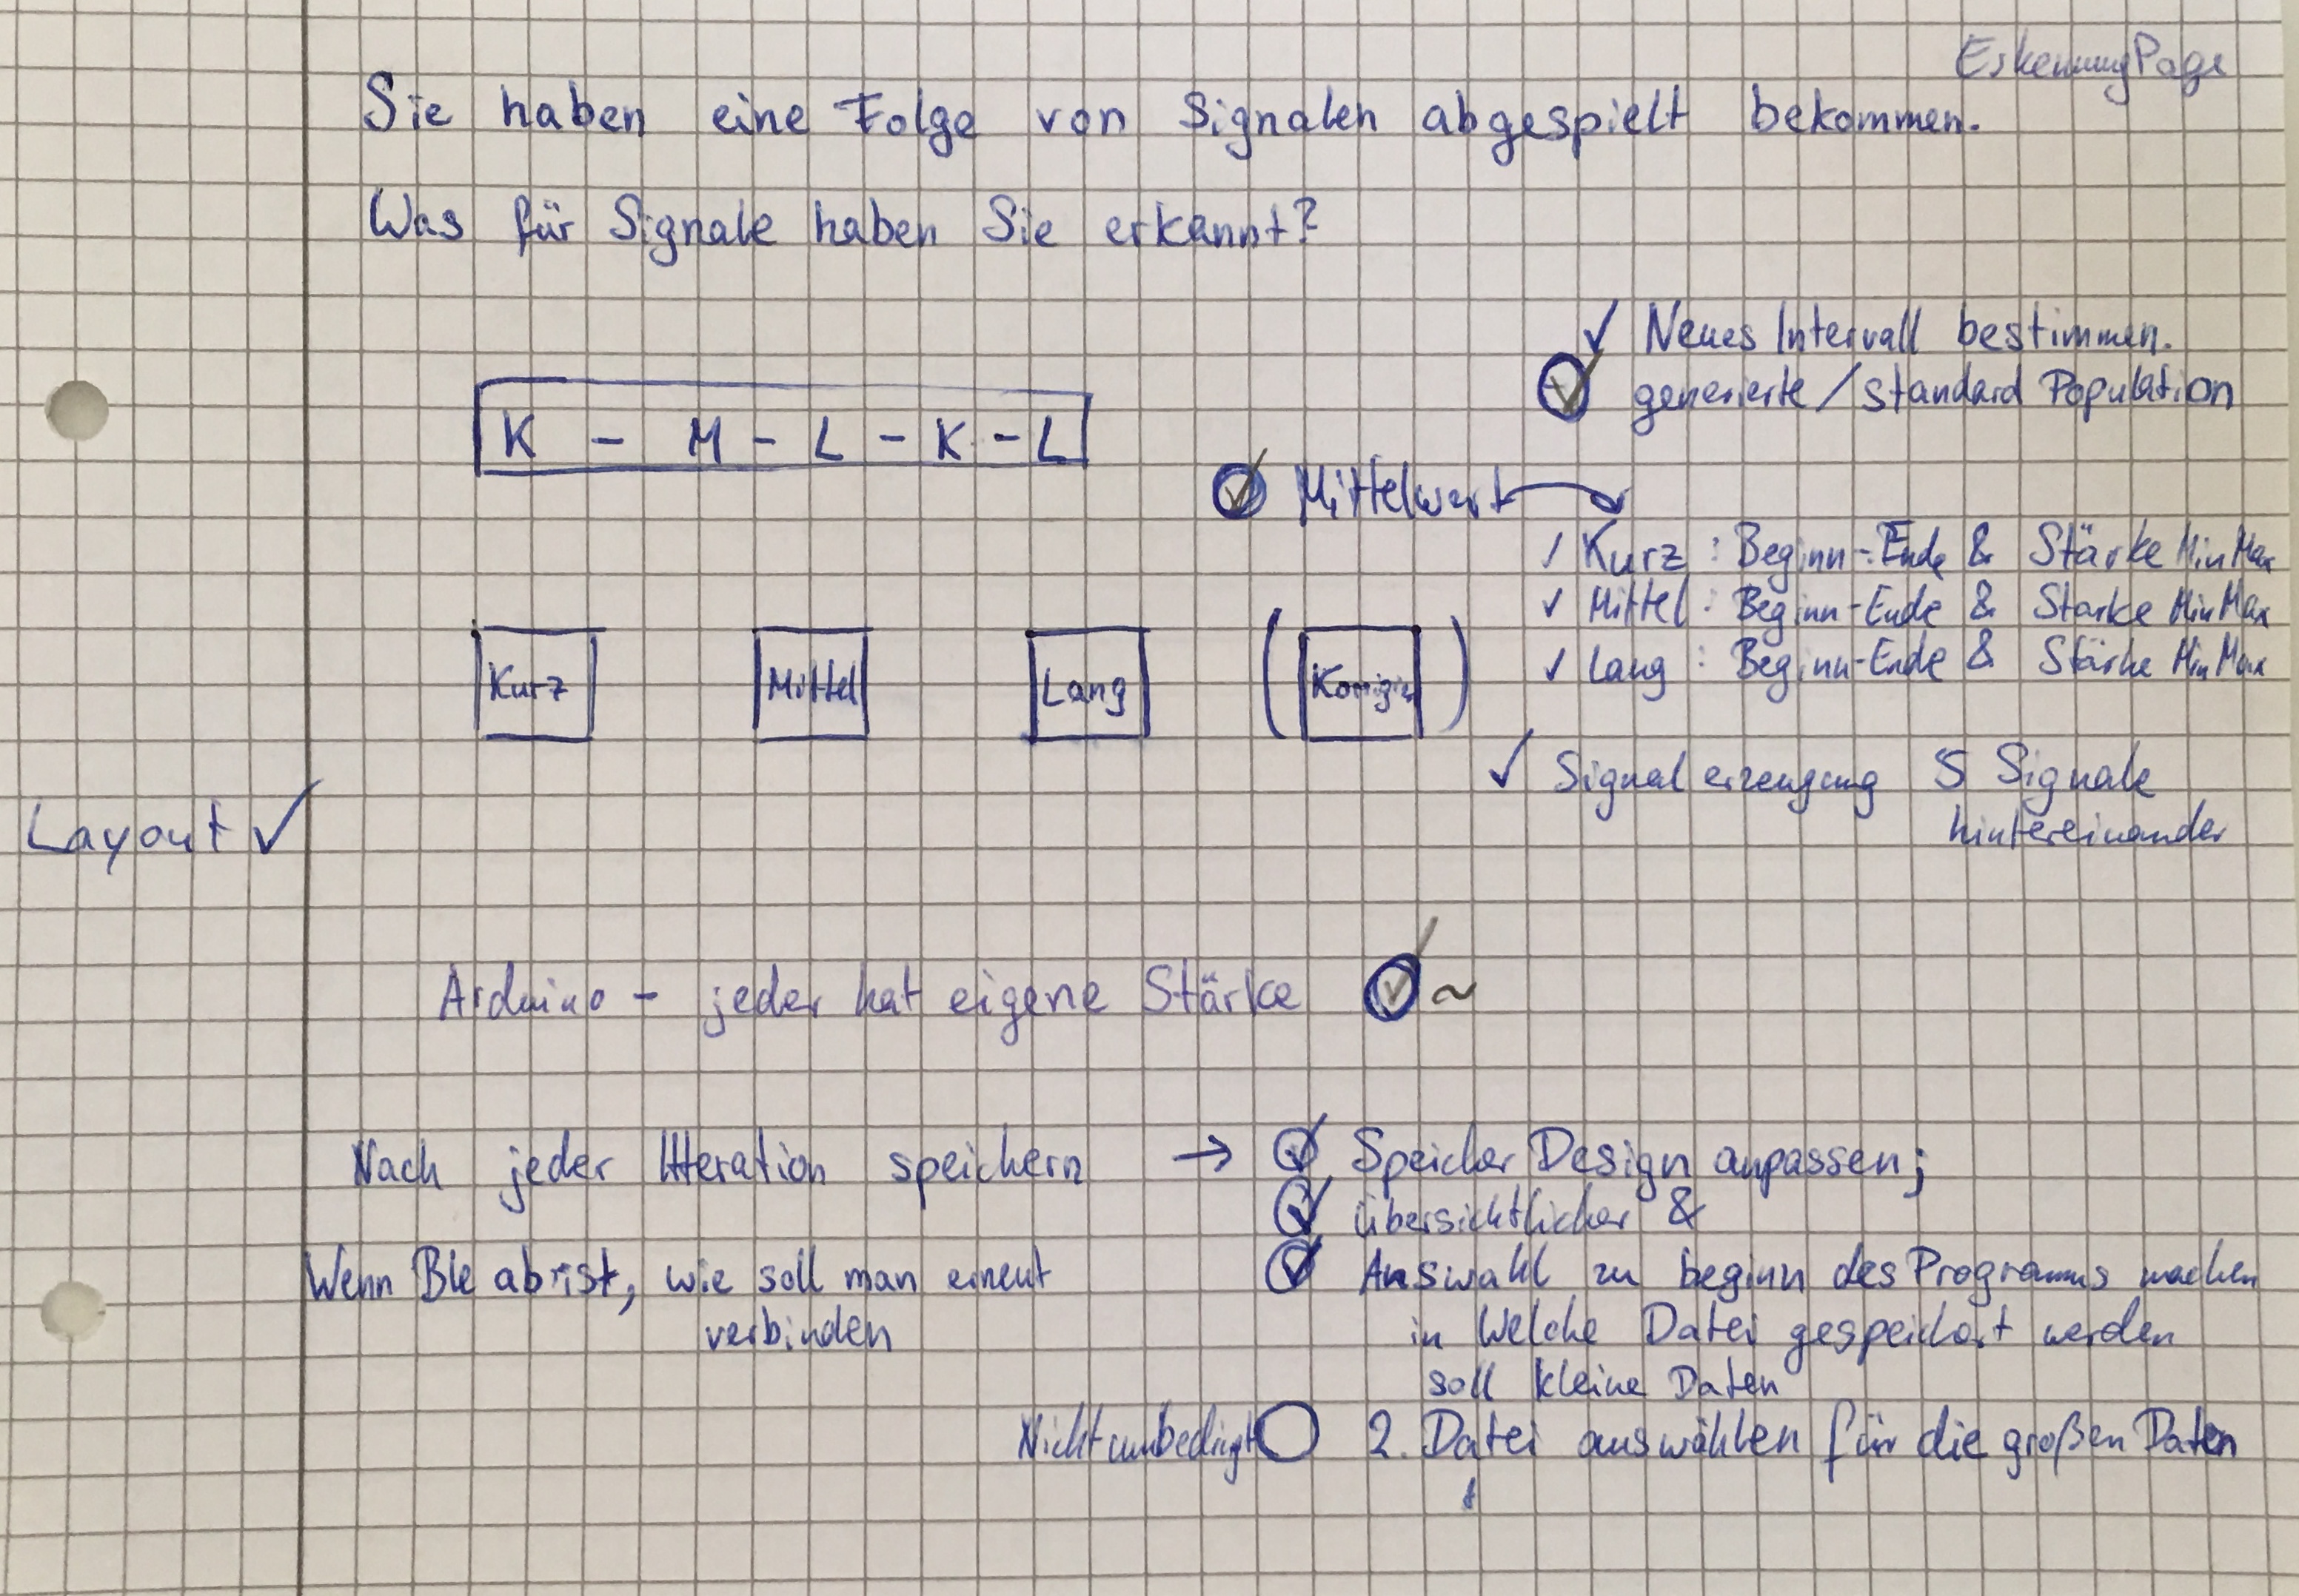 ErkennungPage
Sie haben eine Folge von Signalen abgespielt bekommen.
Was für Signale haben Sie erkannt?
✓ Neues Intervall bestimmen.
✓ generierte / standard Population
K - M - L - K - L
✓ Mittelwert
✓ Kurz : Beginn-Ende & Stärke Min Max
✓ Mittel : Beginn-Ende & Starke Min Max
✓ Lang : Beginn-Ende & Stärke Min Max
Kurz Mittel Lang
✓ Signal erzeugung 5 Signale
hintereinander
Layout ✓
Arduino - jeder hat eigene Stärke ✓ ~
Nach jeder Itteration speichern → ✓ Speicher Design anpassen;
✓ übersichtlicher &
Wenn Ble abrist, wie soll man erneut
verbinden
✓ Auswahl zu beginn des Programms machen
in Welche Datei gespeichert werden
soll kleine Daten
Nicht unbedingt ○ 2. Datei auswählen für die großen Daten